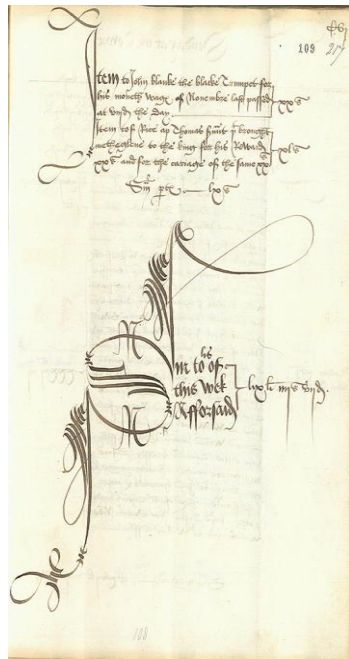 109
Item to John Blanke the blacke Trumpet for
his moneth wage of Nouembre last passed xxs
at viijd the day
Item to Rice ap Thomas brought
metheglene to the king for his Reward xls
xxs and for the cariage of the same xxs
Sm pte lxs
Sm tols of
this Wek
Afforsaid
108